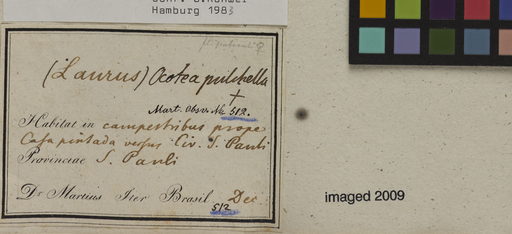 Hamburg 1983
(Laurus) Ocotea pulchella
†
Mart. Obsv. No. 512.
Habitat in campestribus prope
Casa pintada versus Civ. S. Pauli
Provinciae S. Pauli
Dr Martius Iter Brasil Dec.
512
imaged 2009